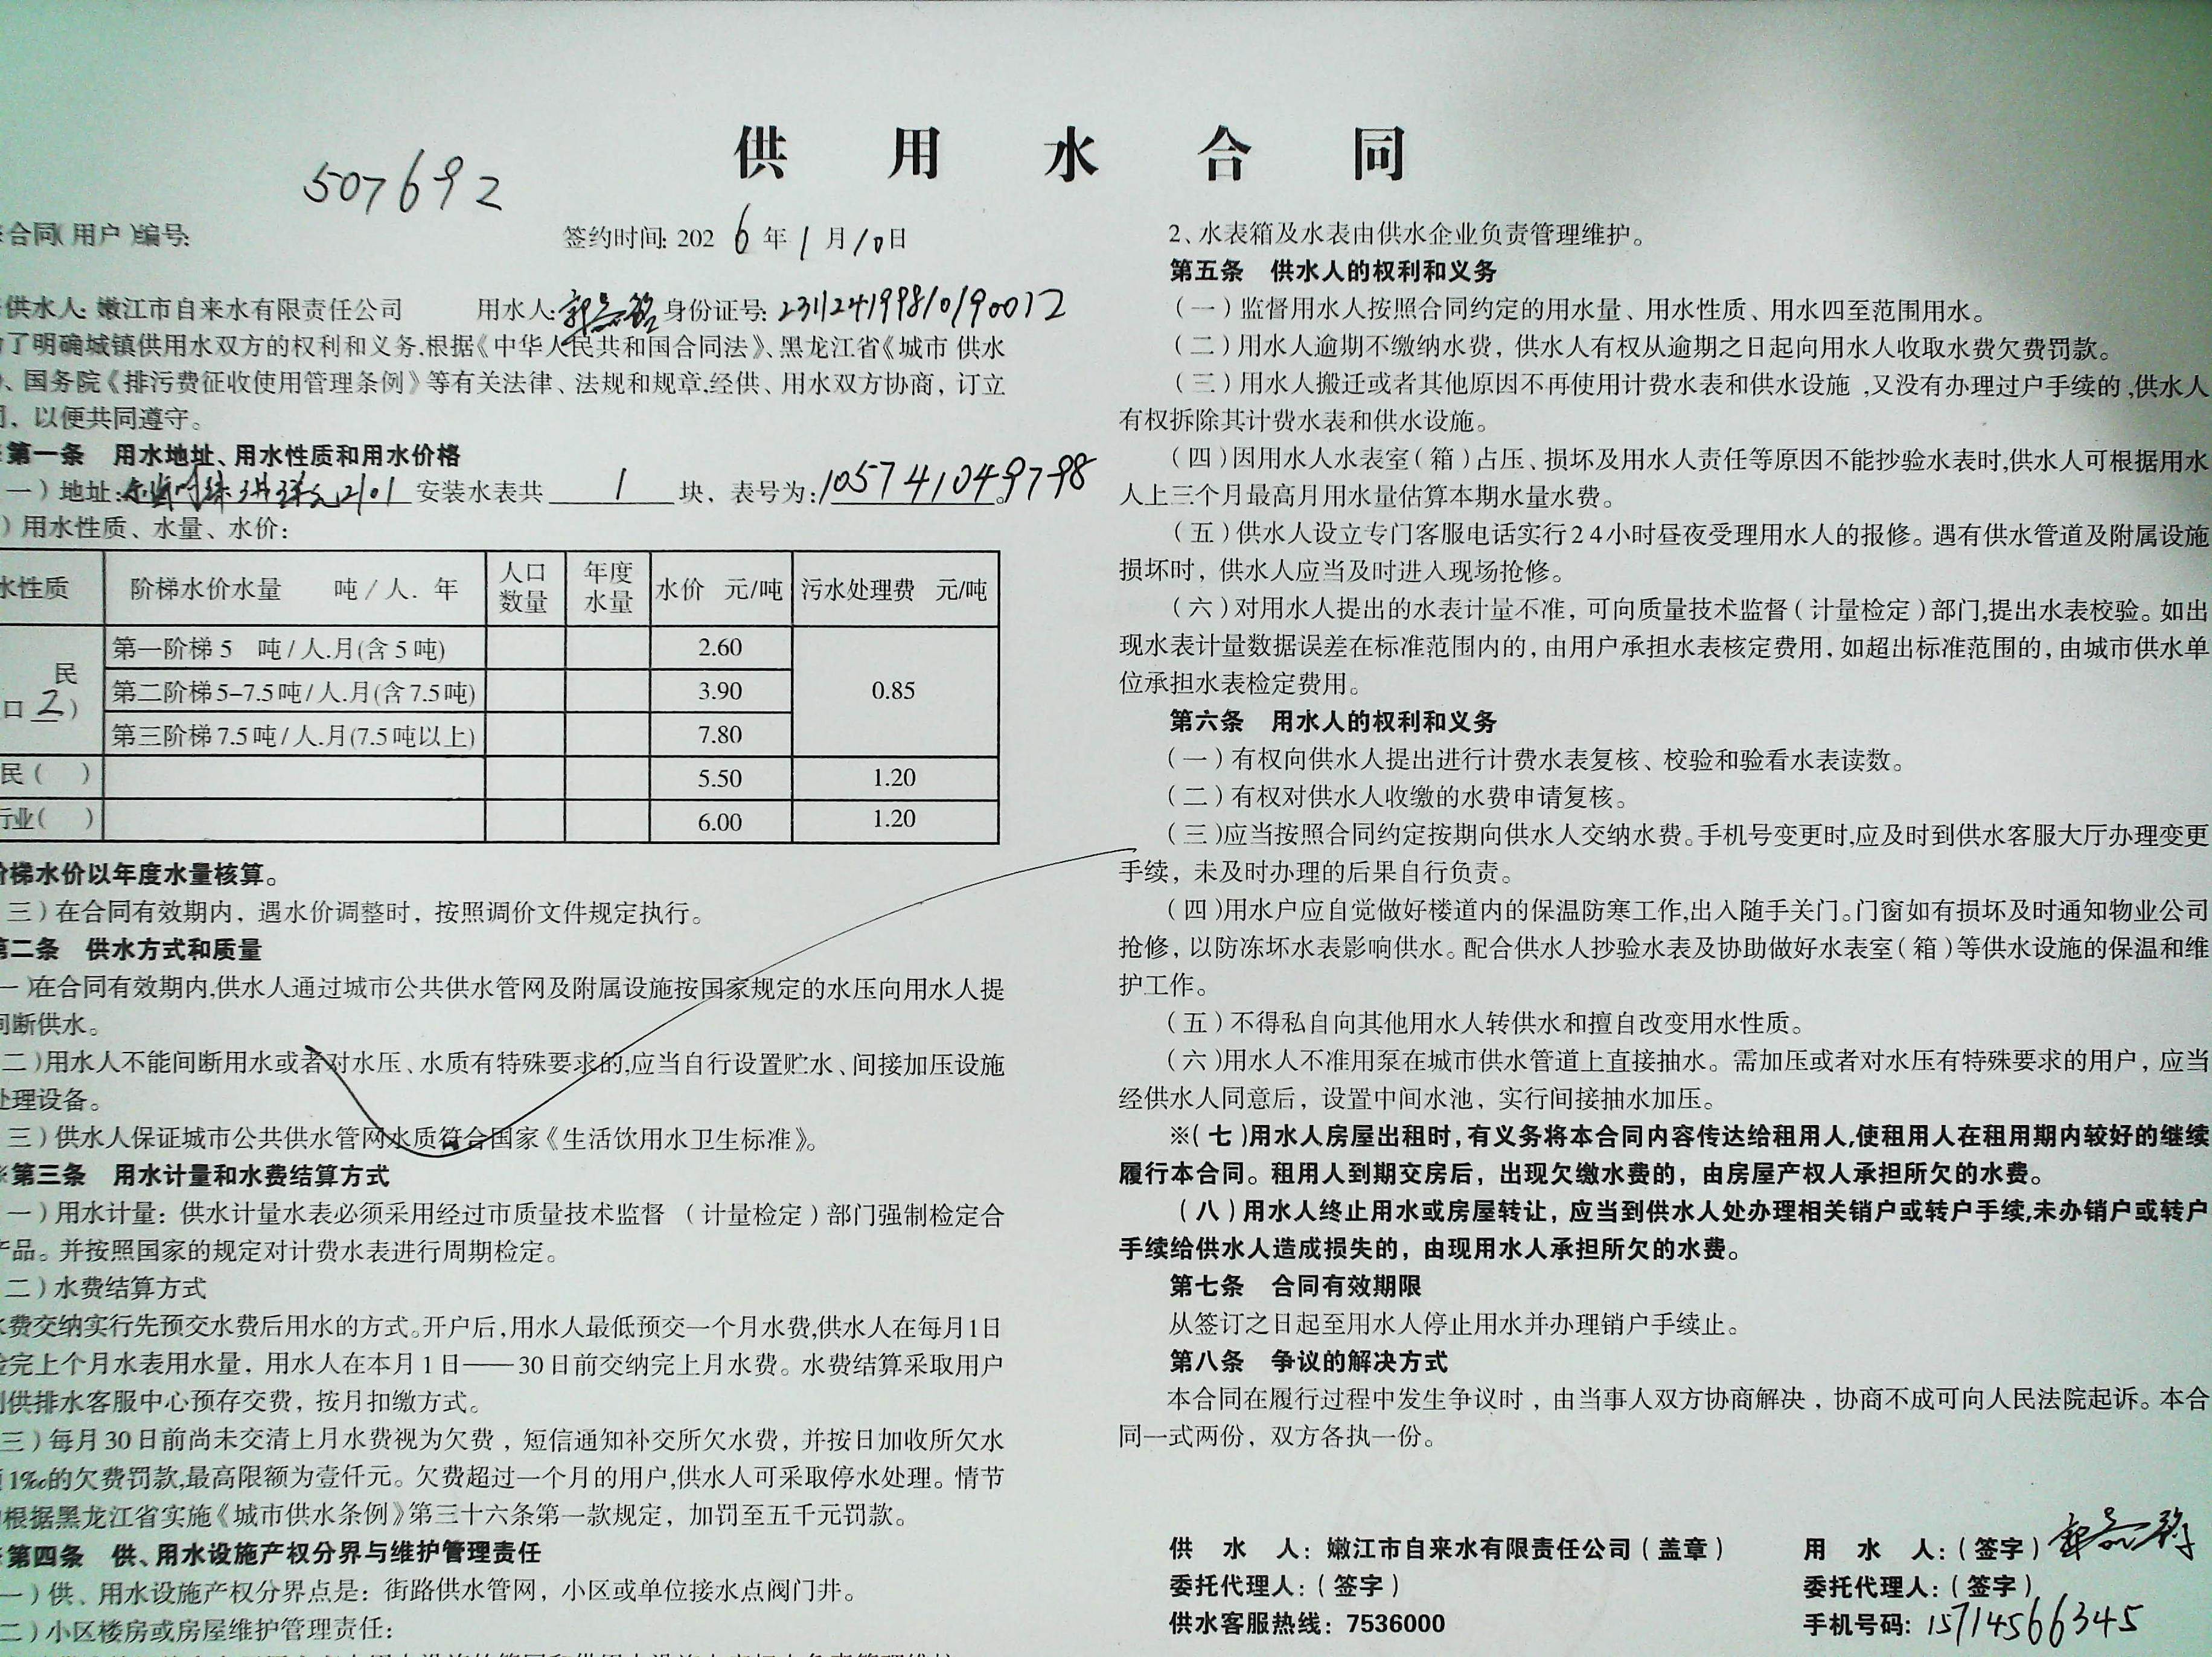 供用水合同
507692
合同(用户)编号:
签约时间: 2026年1月10日
供水人: 嫩江市自来水有限责任公司 用水人: 身份证号: 231124199810190012
了明确城镇供用水双方的权利和义务.根据《中华人民共和国合同法》、黑龙江省《城市 供水
、国务院《排污费征收使用管理条例》等有关法律、法规和规章.经供、用水双方协商，订立
，以便共同遵守。
第一条 用水地址、用水性质和用水价格
一)地址: 2101 安装水表共 1 块，表号为: 105741049798。
)用水性质、水量、水价:
水性质 阶梯水价水量 吨/人.年 人口数量 年度水量 水价 元/吨 污水处理费 元/吨
民
口2)
第一阶梯5 吨/人.月(含5吨) 2.60
第二阶梯5-7.5吨/人.月(含7.5吨) 3.90 0.85
第三阶梯7.5吨/人.月(7.5吨以上) 7.80
民( ) 5.50 1.20
行业( ) 6.00 1.20
阶梯水价以年度水量核算。
三)在合同有效期内，遇水价调整时，按照调价文件规定执行。
第二条 供水方式和质量
一)在合同有效期内,供水人通过城市公共供水管网及附属设施按国家规定的水压向用水人提
间断供水。
二)用水人不能间断用水或者对水压、水质有特殊要求的,应当自行设置贮水、间接加压设施
处理设备。
三)供水人保证城市公共供水管网水质符合国家《生活饮用水卫生标准》。
※第三条 用水计量和水费结算方式
一)用水计量：供水计量水表必须采用经过市质量技术监督 (计量检定)部门强制检定合
产品。并按照国家的规定对计费水表进行周期检定。
二)水费结算方式
水费交纳实行先预交水费后用水的方式。开户后,用水人最低预交一个月水费,供水人在每月1日
完上个月水表用水量，用水人在本月1日——30日前交纳完上月水费。水费结算采取用户
到供排水客服中心预存交费，按月扣缴方式。
三)每月30日前尚未交清上月水费视为欠费，短信通知补交所欠水费，并按日加收所欠水
1‰的欠费罚款,最高限额为壹仟元。欠费超过一个月的用户,供水人可采取停水处理。情节
根据黑龙江省实施《城市供水条例》第三十六条第一款规定，加罚至五千元罚款。
第四条 供、用水设施产权分界与维护管理责任
一)供、用水设施产权分界点是：街路供水管网，小区或单位接水点阀门井。
二)小区楼房或房屋维护管理责任:
2、水表箱及水表由供水企业负责管理维护。
第五条 供水人的权利和义务
(一)监督用水人按照合同约定的用水量、用水性质、用水四至范围用水。
(二)用水人逾期不缴纳水费，供水人有权从逾期之日起向用水人收取水费欠费罚款。
(三)用水人搬迁或者其他原因不再使用计费水表和供水设施,又没有办理过户手续的,供水人
有权拆除其计费水表和供水设施。
(四)因用水人水表室(箱)占压、损坏及用水人责任等原因不能抄验水表时,供水人可根据用水
人上三个月最高月用水量估算本期水量水费。
(五)供水人设立专门客服电话实行24小时昼夜受理用水人的报修。遇有供水管道及附属设施
损坏时，供水人应当及时进入现场抢修。
(六)对用水人提出的水表计量不准，可向质量技术监督(计量检定)部门,提出水表校验。如出
现水表计量数据误差在标准范围内的，由用户承担水表核定费用，如超出标准范围的，由城市供水单
位承担水表检定费用。
第六条 用水人的权利和义务
(一)有权向供水人提出进行计费水表复核、校验和验看水表读数。
(二)有权对供水人收缴的水费申请复核。
(三)应当按照合同约定按期向供水人交纳水费。手机号变更时,应及时到供水客服大厅办理变更
手续，未及时办理的后果自行负责。
(四)用水户应自觉做好楼道内的保温防寒工作,出入随手关门。门窗如有损坏及时通知物业公司
抢修，以防冻坏水表影响供水。配合供水人抄验水表及协助做好水表室(箱)等供水设施的保温和维
护工作。
(五)不得私自向其他用水人转供水和擅自改变用水性质。
(六)用水人不准用泵在城市供水管道上直接抽水。需加压或者对水压有特殊要求的用户，应当
经供水人同意后，设置中间水池，实行间接抽水加压。
※(七)用水人房屋出租时,有义务将本合同内容传达给租用人,使租用人在租用期内较好的继续
履行本合同。租用人到期交房后，出现欠缴水费的，由房屋产权人承担所欠的水费。
(八)用水人终止用水或房屋转让，应当到供水人处办理相关销户或转户手续,未办销户或转户
手续给供水人造成损失的，由现用水人承担所欠的水费。
第七条 合同有效期限
从签订之日起至用水人停止用水并办理销户手续止。
第八条 争议的解决方式
本合同在履行过程中发生争议时，由当事人双方协商解决，协商不成可向人民法院起诉。本合
同一式两份，双方各执一份。
供 水 人：嫩江市自来水有限责任公司(盖章) 用 水 人：(签字)
委托代理人：(签字) 委托代理人：(签字)
供水客服热线：7536000 手机号码: 15714566345